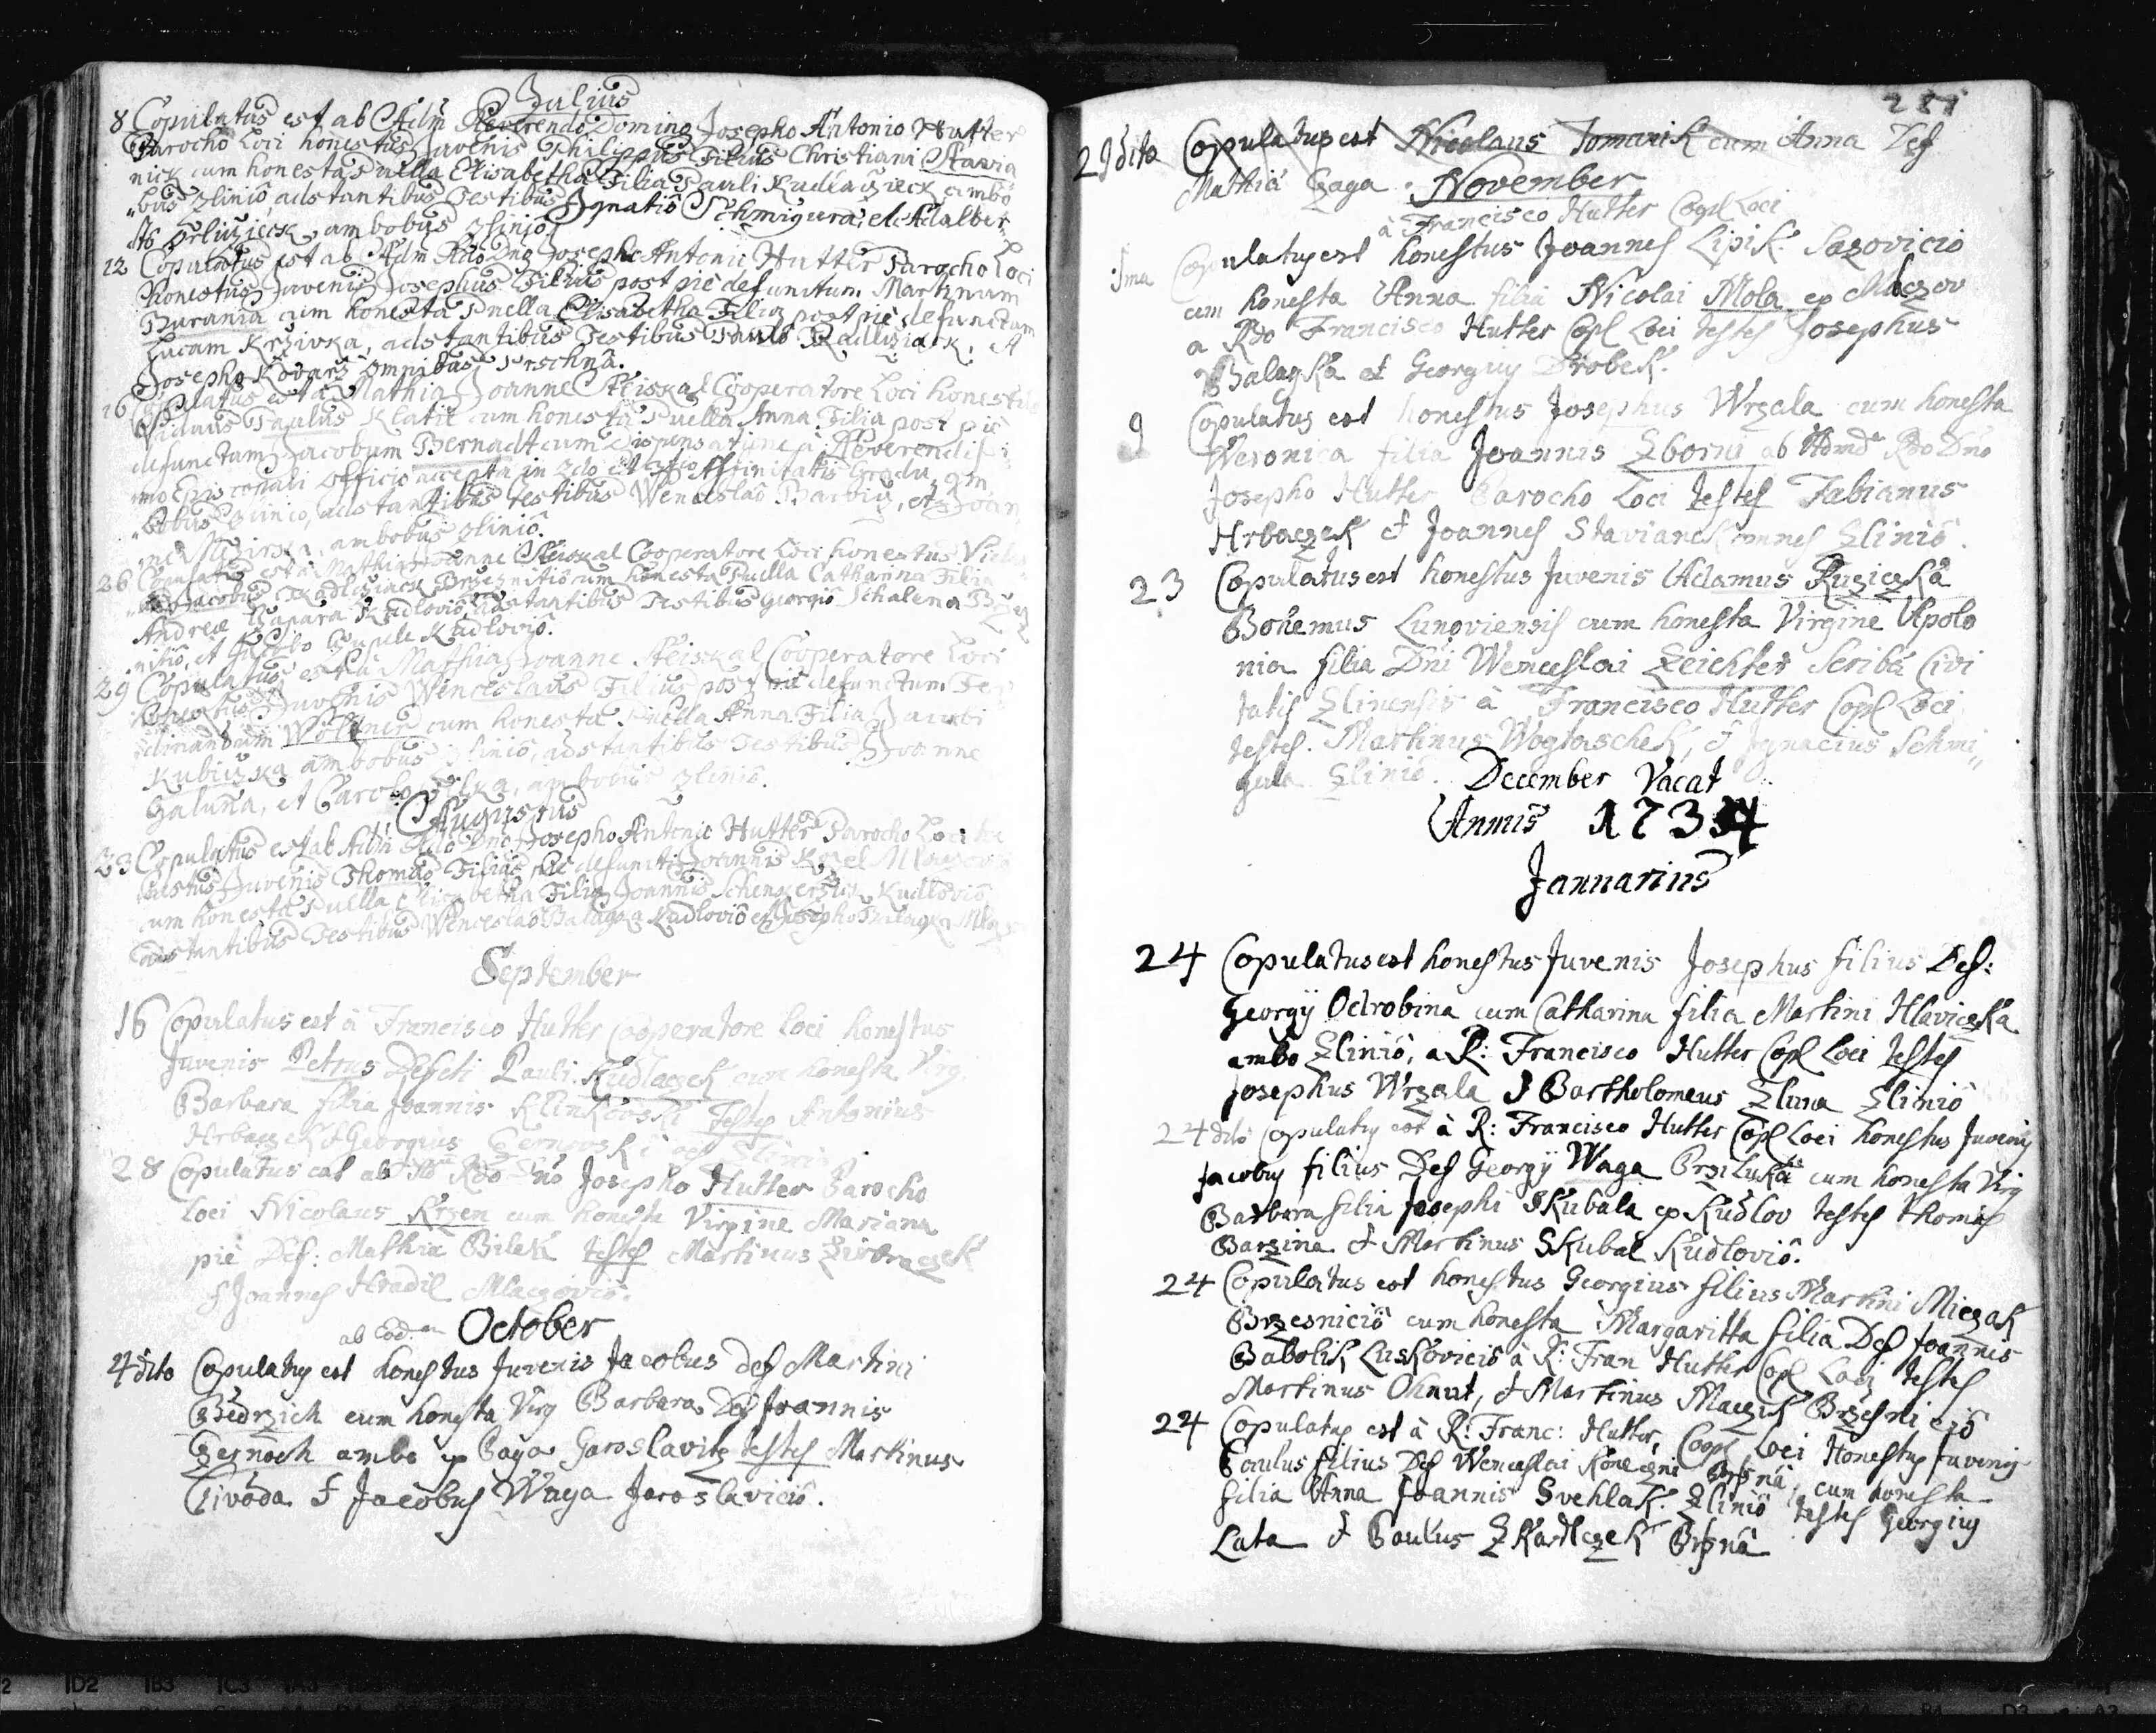 Julius
8 Copulatus est ab Adm Reverendo Domino Josepho Antonio Hutter
Parocho Loci honestus Juvenis Philippus Filius Christiani Stavia
nick cum honesta Puella Elisabetha Filia Pauli Kudlaczieck ambo
bus Zlinio, adstantibus Testibus Ignatio Schmigura, et Adalber
to ambobus Zlinio
12 Copulatus est ab Adm Rdo Dno Josepho Antonio Hutter Parocho Loci
honestus Juvenis Josephus Filius post pie defunctum Martinum
Burania cum honesta Puella Elisabetha Filia post pie defunctum
Lucam Krzivka, adstantibus Testibus Paulo
Josepho Kovarz omnibus Prschna.
16 Copulatus est a Mathia Joanne Pleiskal Cooperatore Loci honestus
Viduus Paulus Klatil cum honesta Puella Anna Filia post pie
defunctum Jacobum Bernadt cum Dispensatione a Reverendissi
mo officio accepta in 2do et 3tio Affinitatis Gradu,
bobus Zlinio, adstantibus testibus Wenceslao et Joan
ne ambobus Zlinio.
26 Copulatus est a Mathia Joanne Pleiskal Cooperatore Loci honestus Vidu
Jacobus cum honesta Puella Catharina Filia
Andreæ Czapara Kudlovio, adstantibus Testibus Georgio Schalena Brzez
nitio, et Kudlovio.
29 Copulatus est a Mathia Joanne Pleiskal Cooperatore Loci
honestus Juvenis Wenceslaus Filius post pie defunctum Fer
dinandum Woldner cum honesta Puella Anna Filia Jacobi
Kubiczka ambobus Zlinio, adstantibus Testibus Joanne
Galuna, et Carolo ambobus Zlinio.
Augustus
23 Copulatus est ab Adm Rdo Dno Josepho Antonio Hutter Parocho Loci ho
nestus Juvenis Thomas Filius pie defuncti Joannis Knel
cum honesta Puella Elisabetha Filia Joannis Kudlovio
adstantibus Testibus Wenceslao Balayka Kudlovio et Josepho Balayka
September
16 Copulatus est à Francisco Hutter Cooperatore Loci honestus
Juvenis Petrus Defcti Pauli Kudlaczek cum honesta Virg
Barbara filia Joannis Klinkovski Testes Antonius
Hrbaczek & Georgius
28 Copulatus est ab Rdo Dno Josepho Hutter Parocho
Loci Nicolaus Krzen cum honesta Virgine Mariana
pie Def: Mathiæ Bilek testes Martinus
& Joannes Hradil Mlaczovio.
ab eod:m October
4 dito Copulatus est honestus Juvenis Jacobus Def Martini
Bedrzich cum honesta Virg Barbara Def Joannis
Czernoch ambo ex Paga Jaroslavitz testes Martinus
Civoda & Jacobus Waga Jaroslavicio.
29 dito Copulatus est Nicolaus Tomanik cum Anna Def
Mathiæ Gaga. November
à Francisco Hutter Copl Loci
1ma Copulatus est honestus Joannes Lipik Sazovicio
cum honesta Anna filia Nicolai Mola ex Mlaczov
a Rdo Francisco Hutter Copl Loci testes Josephus
Balayka et Georgius Drobek.
9 Copulatus est honestus Josephus Wrzala cum honesta
Weronica filia Joannis Zborni ab Admd Rdo Dno
Josepho Hutter Parocho Loci testes Fabianus
Hrbaczek & Joannes Staviane omnes Zlinio.
23 Copulatus est honestus Juvenis Adamus Ruziczka
Bohemus Lunoviensis cum honesta Virgine Apolo
nia filia Dni Wenceslai Zeichter Scribæ Civi
tatis Zlinensis à Francisco Hutter Copl Loci
testes. Martinus Woglaschek, & Ignacius Schmi
gula Zlinio. December Vacat
Annus 1734
Januarius
24 Copulatus est honestus Juvenis Josephus filius Def:
Georgÿ Odrobina cum Catharina filia Martini Hlaviczka
ambo Zlinio, a R: Francisco Hutter Copl Loci testes
Josephus Wrzala & Bartholomeus Zluna Zlinio
24 dito Copulatus est à R: Francisco Hutter Copl Loci honestus Juvenis
Jacobus filius Def Georgÿ Waga Prziluka cum honesta Virg
Barbara filia Josephi Skubala ex Kudlov testes Thomas
Barzina & Martinus Skubal Kudlovio.
24 Copulatus est honestus Georgius filius Martini Miczak
Brzesnicio cum honesta Margaritta filia Def Joannis
Babolik Luskovicio à R: Fran Hutter Copl Loci testes
Martinus Ohnut, & Martinus Maczik Brzesnicio
24 Copulatus est à R: Franc: Hutter, Coopl Loci Honestus Juvenis
Paulus filius Def Wenceslai Koneczni Prsna, cum honesta
filia Anna Joannis Svehlak Zlinio testes Georgius
Lata & Paulus Zkardlczek Prsna